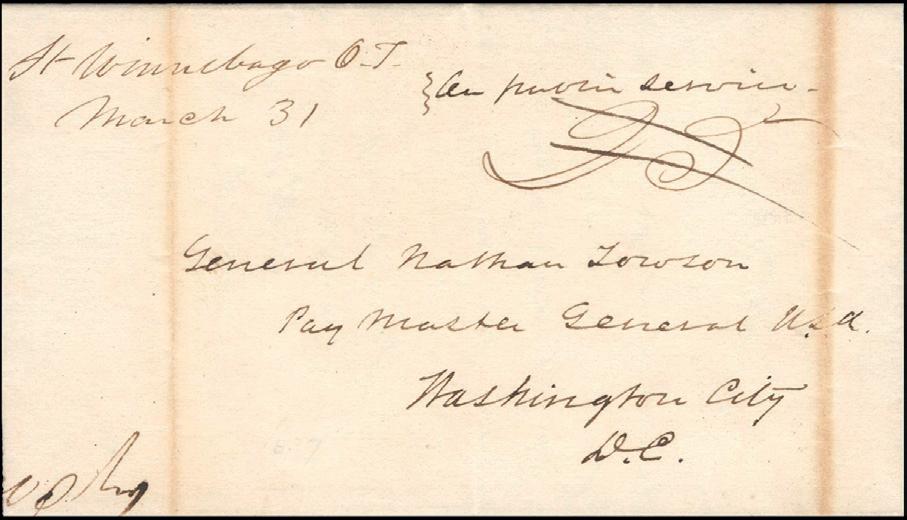 Ft Winnebago O.T.
March 31
On public service
General Nathan Towson
Pay Master General U.S.A.
Washington City
D.C.